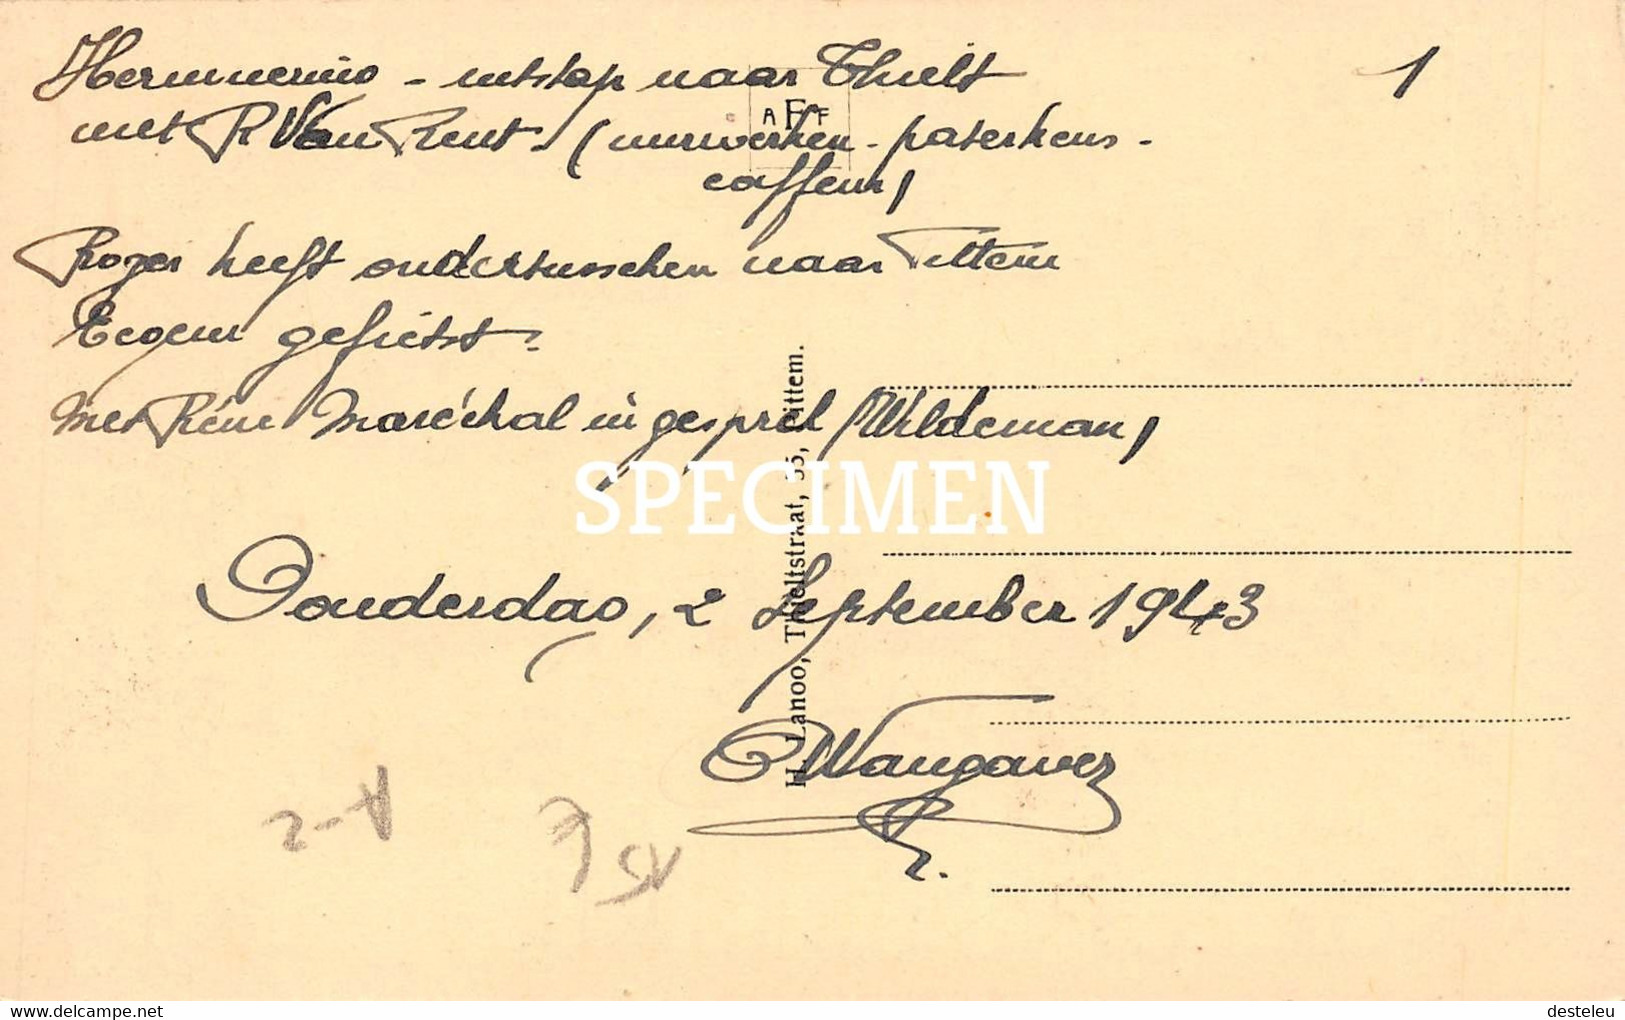 Herinnering - uitstap naar Thielt 1
met R Van Rent - (uurwerken - paterkens -
coiffeur)
A F A F
Roger heeft ondertusschen naar Pittem
Eegem gefietst.
Met Réne Maréchal in gesprek (Wildeman)
SPECIMEN
Donderdag, 2 September 1943
H. Lanoo, Thieltstraat, 35, Pittem.
delcampe.net
desteleu